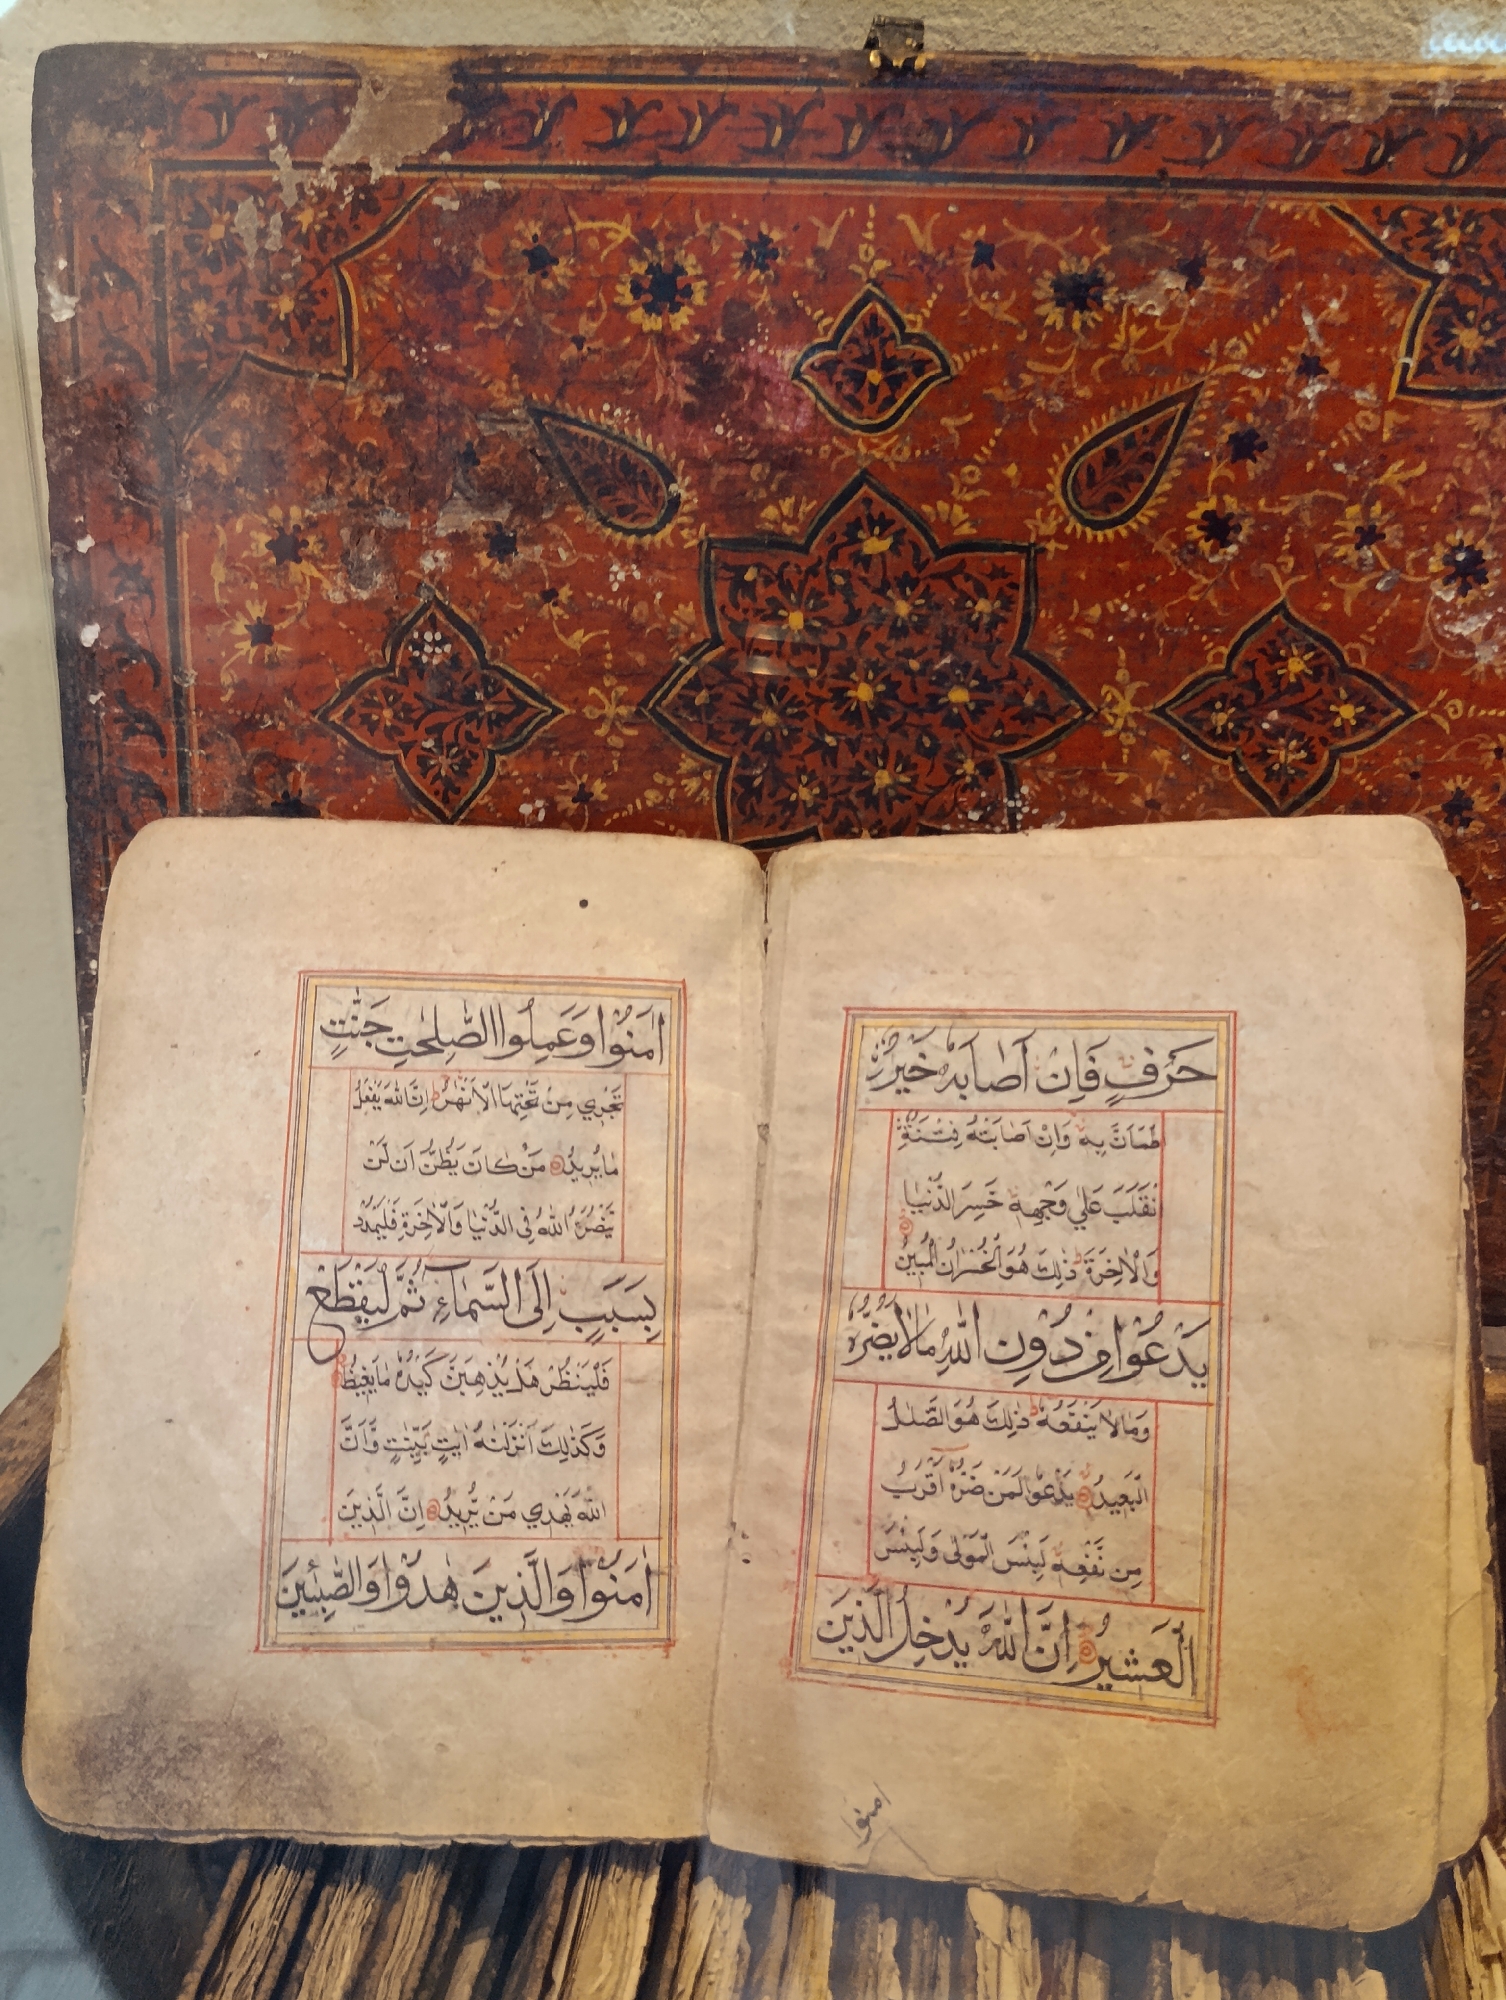 حَرْفٍ فَاِنْ اَصَابَهٗ خَيْرُ
طْمَاَنَّ بِهٖ وَاِنْ اَصَابَتْهُ فِتْنَةُ
نْقَلَبَ عَلٰي وَجْهِهٖ خَسِرَ الدُّنْيَا
وَالْاٰخِرَةَ ذٰلِكَ هُوَ الْخُسْرَانُ الْمُبِيْنُ
يَدْعُوْا مِنْ دُوْنِ اللّٰهِ مَا لَا يَضُرُّهٗ
وَمَا لَا يَنْفَعُهٗ ذٰلِكَ هُوَ الضَّلٰلُ
الْبَعِيْدُ يَدْعُوْا لَمَنْ ضَرُّهٗ اَقْرَبُ
مِنْ نَّفْعِهٖ لَبِئْسَ الْمَوْلٰى وَلَبِئْسَ
الْعَشِيْرُ اِنَّ اللّٰهَ يُدْخِلُ الَّذِيْنَ
اٰمنوا
اٰمَنُوْا وَعَمِلُوا الصّٰلِحٰتِ جَنّٰتٍ
تَجْرِي مِنْ تَحْتِهَا الْاَنْهٰرُ اِنَّ اللّٰهَ يَفْعَلُ
مَا يُرِيْدُ مَنْ كَانَ يَظُنُّ اَنْ لَنْ
يَنْصُرَهُ اللّٰهُ فِى الدُّنْيَا وَالْاٰخِرَةِ فَلْيَمْدُدْ
بِسَبَبٍ اِلَى السَّمَاءِ ثُمَّ لْيَقْطَعْ
فَلْيَنْظُرْ هَلْ يُذْهِبَنَّ كَيْدُهٗ مَا يَغِيْظُ
وَكَذٰلِكَ اَنْزَلْنٰهُ اٰيٰتٍ بَيِّنٰتٍ وَّاَنَّ
اللّٰهَ يَهْدِي مَنْ يُّرِيْدُ اِنَّ الَّذِيْنَ
اٰمَنُوْا وَالَّذِيْنَ هَادُوْا وَالصّٰبِئِيْنَ